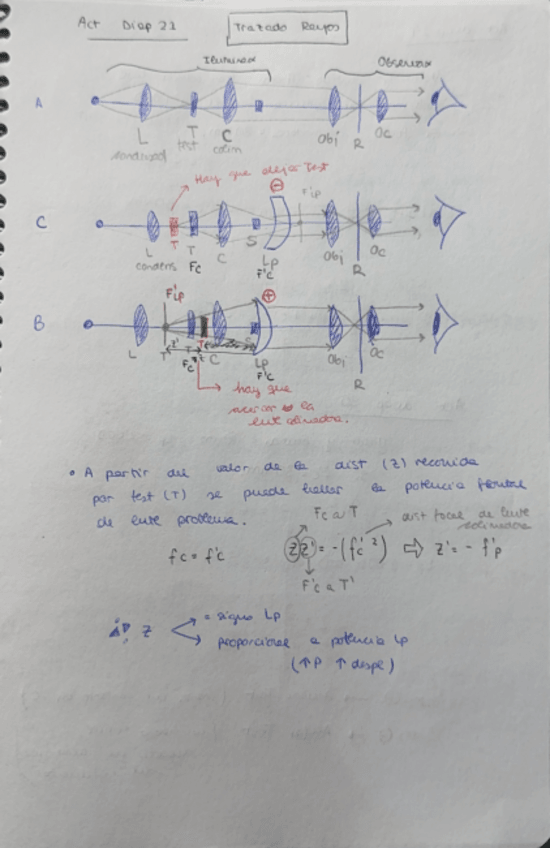 Act Diap 21
Tratado Rayos
Iluminax
Observax
A
L
T
C
Obj
R
Oc
test
colim
Hay que alejar test
C
L
T
T
C
S
Lp
Obj
R
Oc
condens
Fc
F'c
F'Lp
B
L
T'
T
T
C
S
Lp
Obj
R
Oc
Fc
F'c
hay que
acercar a la
lente colimadora.
• A partir del valor de la dist (z) recorrida
por test (T) se puede hallar la potencia frontal
de lente problema.
Fc a T
dist focal de lente
colimadora
fc = f'c
z z' = -(fc'²) ⇨ z' = - f'p
F'c a T'
z
= signo Lp
proporcional a potencia Lp
(↑P ↑ despl)